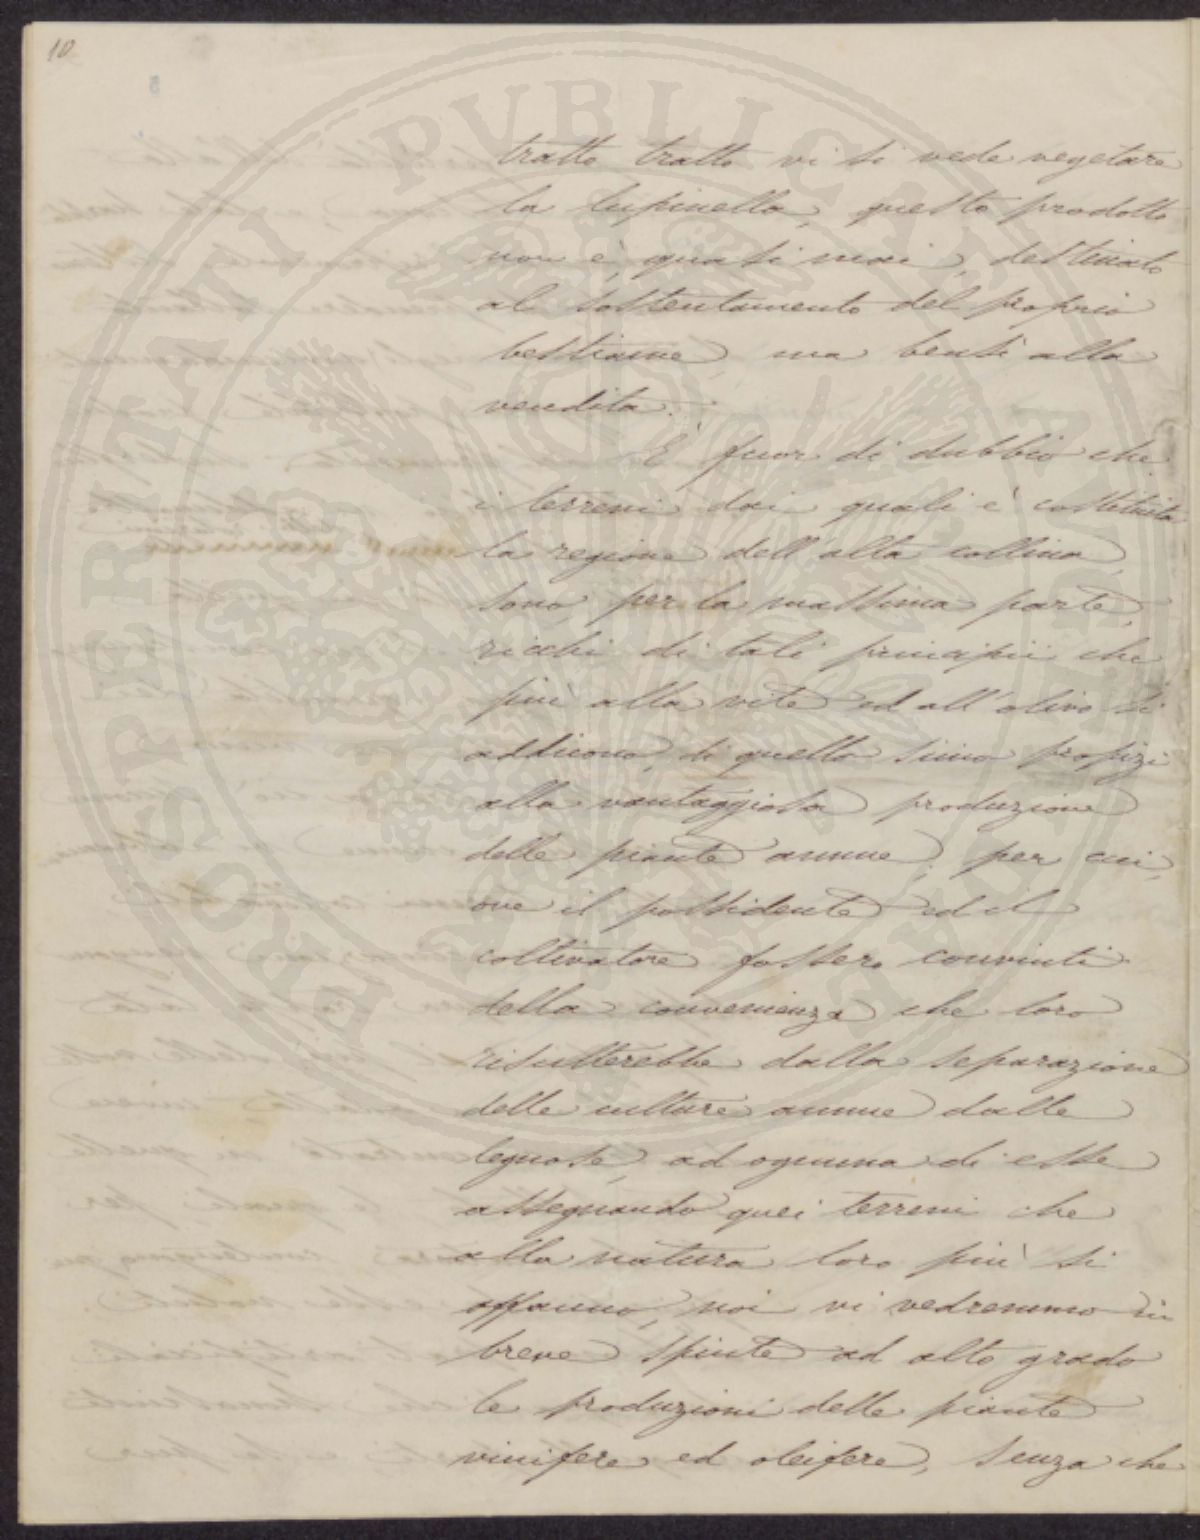 10
tratto tratto vi si vede vegetare
la lupinella, questo prodotto
non è, quasi mai, destinato
al sostentamento del proprio
bestiame, ma bensì alla
vendita.
È fuor di dubbio che
i terreni dai quali è costituita
la regione dell'alta collina,
sono, per la massima parte,
ricchi di tali principii che
più alla vite ed all'olivo si
addicono, di quello sieno propizi
alla vantaggiosa produzione
delle piante annue; per cui,
ove il possidente ed il
coltivatore fossero convinti
della convenienza che loro
risulterebbe dalla separazione
delle culture annue dalle
legnose, ad ognuna di esse
assegnando quei terreni che
alla natura loro più si
affanno, noi vi vedremmo in
breve spinte ad alto grado
le produzioni delle piante
vinifere ed oleifere, senza che
PUBLICAE
PROSPERITATI